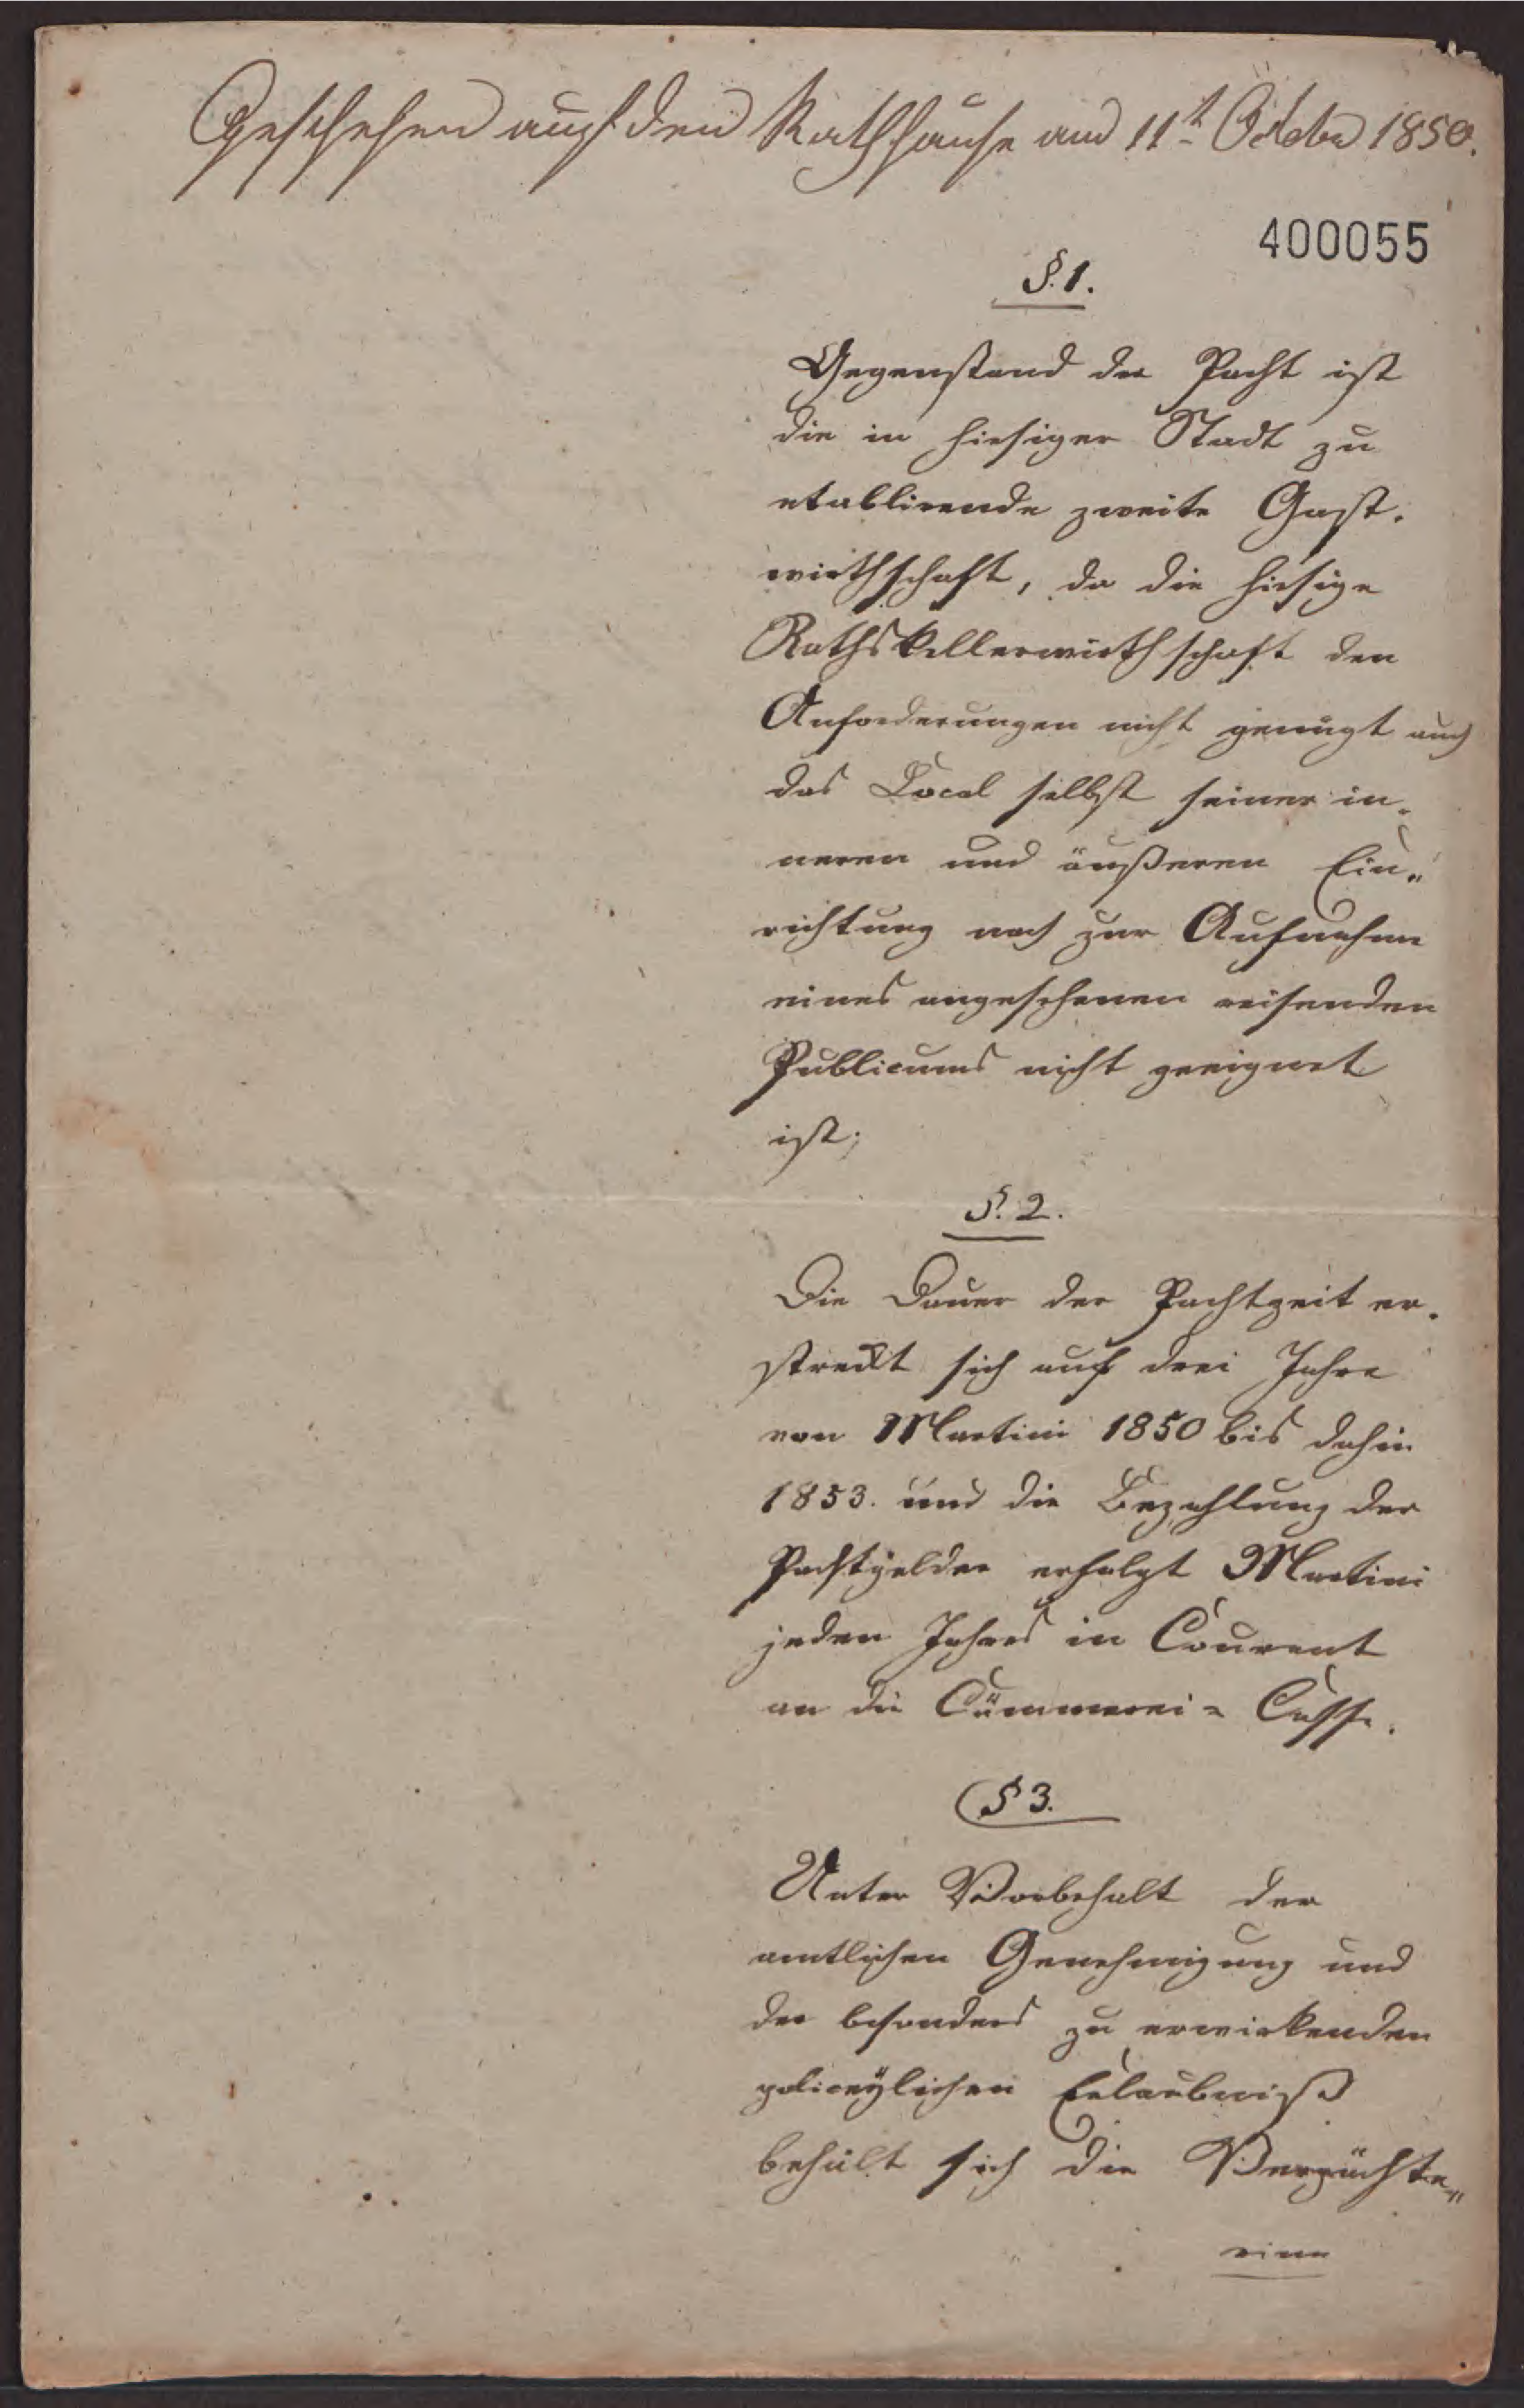 Geschehen auf dem Rathhause am 11t October 1850.
400055
§. 1.
Gegenstand der Pacht ist
die in hiesiger Stadt zu
etablirende zweite Gast-
wirthschaft, da die hiesige
Rathskellerwirthschaft den
Anforderungen nicht genügt auch
das Local selbst seiner in-
neren und äußeren Ein-
richtung nach zur Aufnahme
eines angesehenen reisenden
Publicums nicht geeignet
ist;
§. 2.
Die Dauer der Pachtzeit er-
streckt sich auf drei Jahre
von Martini 1850 bis dahin
1853. und die Bezahlung der
Pachtgelder erfolgt Martini
jeden Jahres in Courant
an die Cämmerei-Casse.
§ 3.
Unter Vorbehalt der
amtlichen Genehmigung und
der besonders zu erwirkenden
policeylichen Erlaubniß
behält sich die Verpächte-
rinn